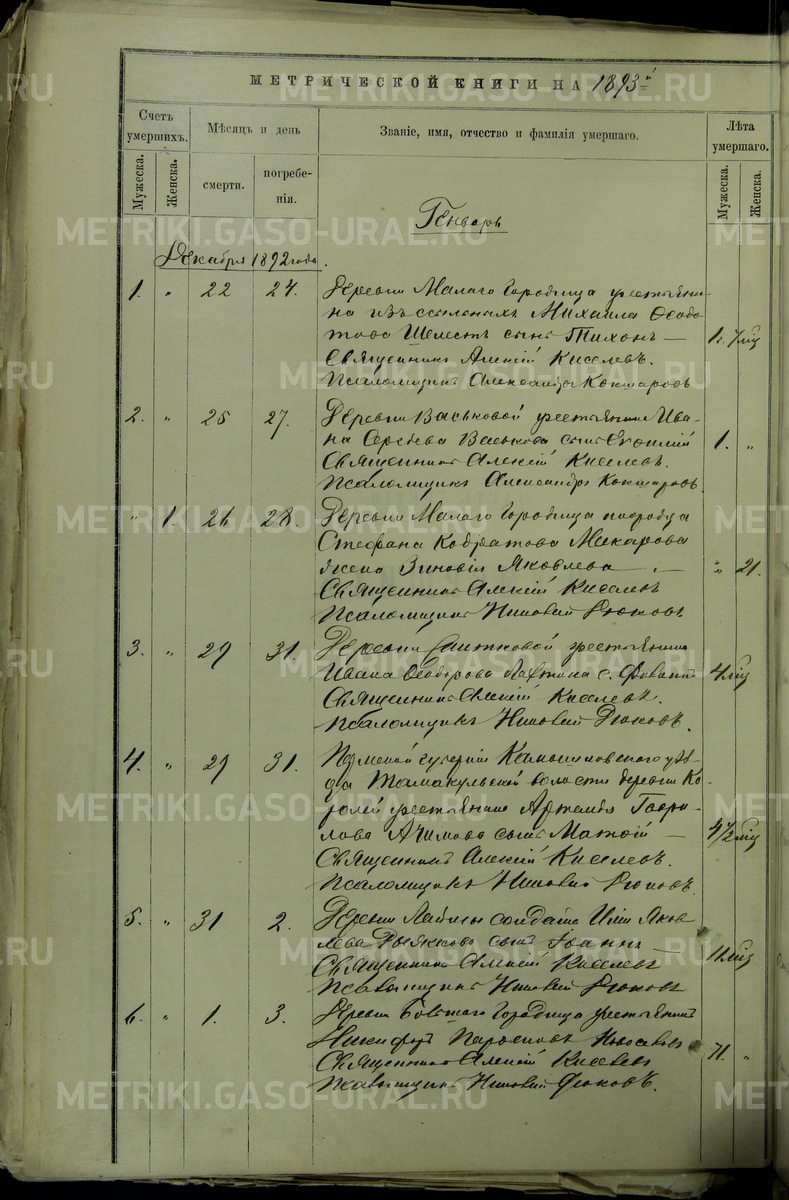 МЕТРИЧЕСКОЙ КНИГИ НА 1893 й
Счетъ умершихъ.
Мужеска.
Женска.
Мѣсяцъ и день
смерти.
погребенія.
Званіе, имя, отчество и фамилія умершаго.
Лѣта умершаго.
Мужеска.
Женска.
Генварь
Декабря 1892 года.
1. " 22 24. Деревни Малаго Городища крестьяни-
на изъ ссыльныхъ Михаила Ѳедо-
това Шелестъ сынъ Тихонъ — 1 г. 7 мц
Священникъ Алексій Киселевъ.
Псаломщикъ Александръ Коктаровъ
2. " 25 27. Деревни Васьковой крестьянина Ива-
на Сергѣева Васькова сынъ 1. "
Священникъ Алексій Киселевъ.
Псаломщикъ Александръ Коктаровъ.
" 1. 26 28. Деревни Малаго Городища инородца
Стефана Кодратова Макарова
жена Зиновія Яковлева — " 21.
Священникъ Алексій Киселевъ
Псаломщикъ Дюковъ
3. " 29 31. Деревни крестьянина
Ивана Ѳеодорова с. 4 мц
Священникъ Алексій Киселевъ.
Псаломщикъ Дюковъ.
4. " 29 31. Пермской губерніи Камышловскаго уѣз-
да Тамакульской волости деревни Ко-
ролей крестьянина Артемія Гаври-
лова Ачимова сынъ Матѳій — 4 1/2 мц
Священникъ Алексій Киселевъ.
Псаломщикъ Дюковъ.
5. " 31 2. Деревни солдата Ильи Яков-
лева сынъ Іоаннъ — 11 мц
Священникъ Алексій Киселевъ
Псаломщикъ Дюковъ
6. " 1. 3. Деревни Большаго Городища крестьянинъ
Никифоръ Парѳеновъ 71. "
Священникъ Алексій Киселевъ
Псаломщикъ Дюковъ.
METRIKI.GASO-URAL.RU